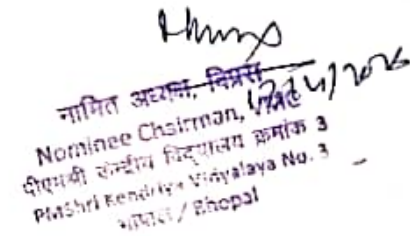 नामित अध्यक्ष, विप्रस
Nominee Chairman,
पीएमश्री केन्द्रीय विद्यालय क्रमांक 3
PMShri Kendriya Vidyalaya No. 3
भोपाल / Bhopal